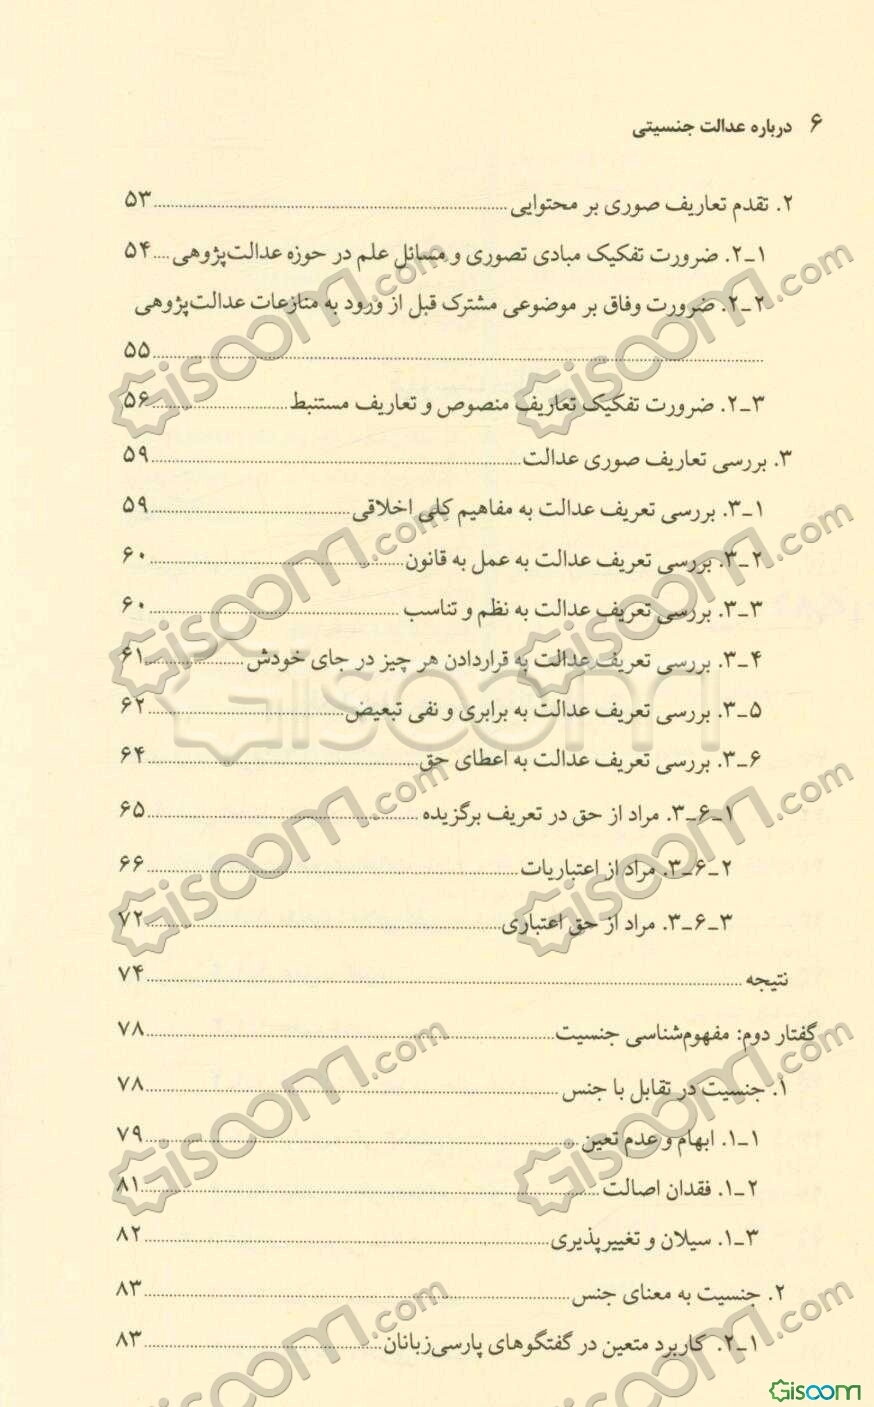 ۶ درباره عدالت جنسیتی
۲. تقدم تعاریف صوری بر محتوایی ۵۳
۱ـ۲. ضرورت تفکیک مبادی تصوری و مسائل علم در حوزه عدالت‌پژوهی ۵۴
۲ـ۲. ضرورت وفاق بر موضوعی مشترک قبل از ورود به منازعات عدالت‌پژوهی
۵۵
۳ـ۲. ضرورت تفکیک تعاریف منصوص و تعاریف مستنبط ۵۶
۳. بررسی تعاریف صوری عدالت ۵۹
۱ـ۳. بررسی تعریف عدالت به مفاهیم کلی اخلاقی ۵۹
۲ـ۳. بررسی تعریف عدالت به عمل به قانون ۶۰
۳ـ۳. بررسی تعریف عدالت به نظم و تناسب ۶۰
۴ـ۳. بررسی تعریف عدالت به قراردادن هر چیز در جای خودش ۶۱
۵ـ۳. بررسی تعریف عدالت به برابری و نفی تبعیض ۶۲
۶ـ۳. بررسی تعریف عدالت به اعطای حق ۶۴
۱ـ۶ـ۳. مراد از حق در تعریف برگزیده ۶۵
۲ـ۶ـ۳. مراد از اعتباریات ۶۶
۳ـ۶ـ۳. مراد از حق اعتباری ۷۲
نتیجه ۷۴
گفتار دوم: مفهوم‌شناسی جنسیت ۷۸
۱. جنسیت در تقابل با جنس ۷۸
۱ـ۱. ابهام و عدم تعین ۷۹
۲ـ۱. فقدان اصالت ۸۱
۳ـ۱. سیلان و تغییرپذیری ۸۲
۲. جنسیت به معنای جنس ۸۳
۱ـ۲. کاربرد متعین در گفتگوهای پارسی‌زبانان ۸۳
Gisoom